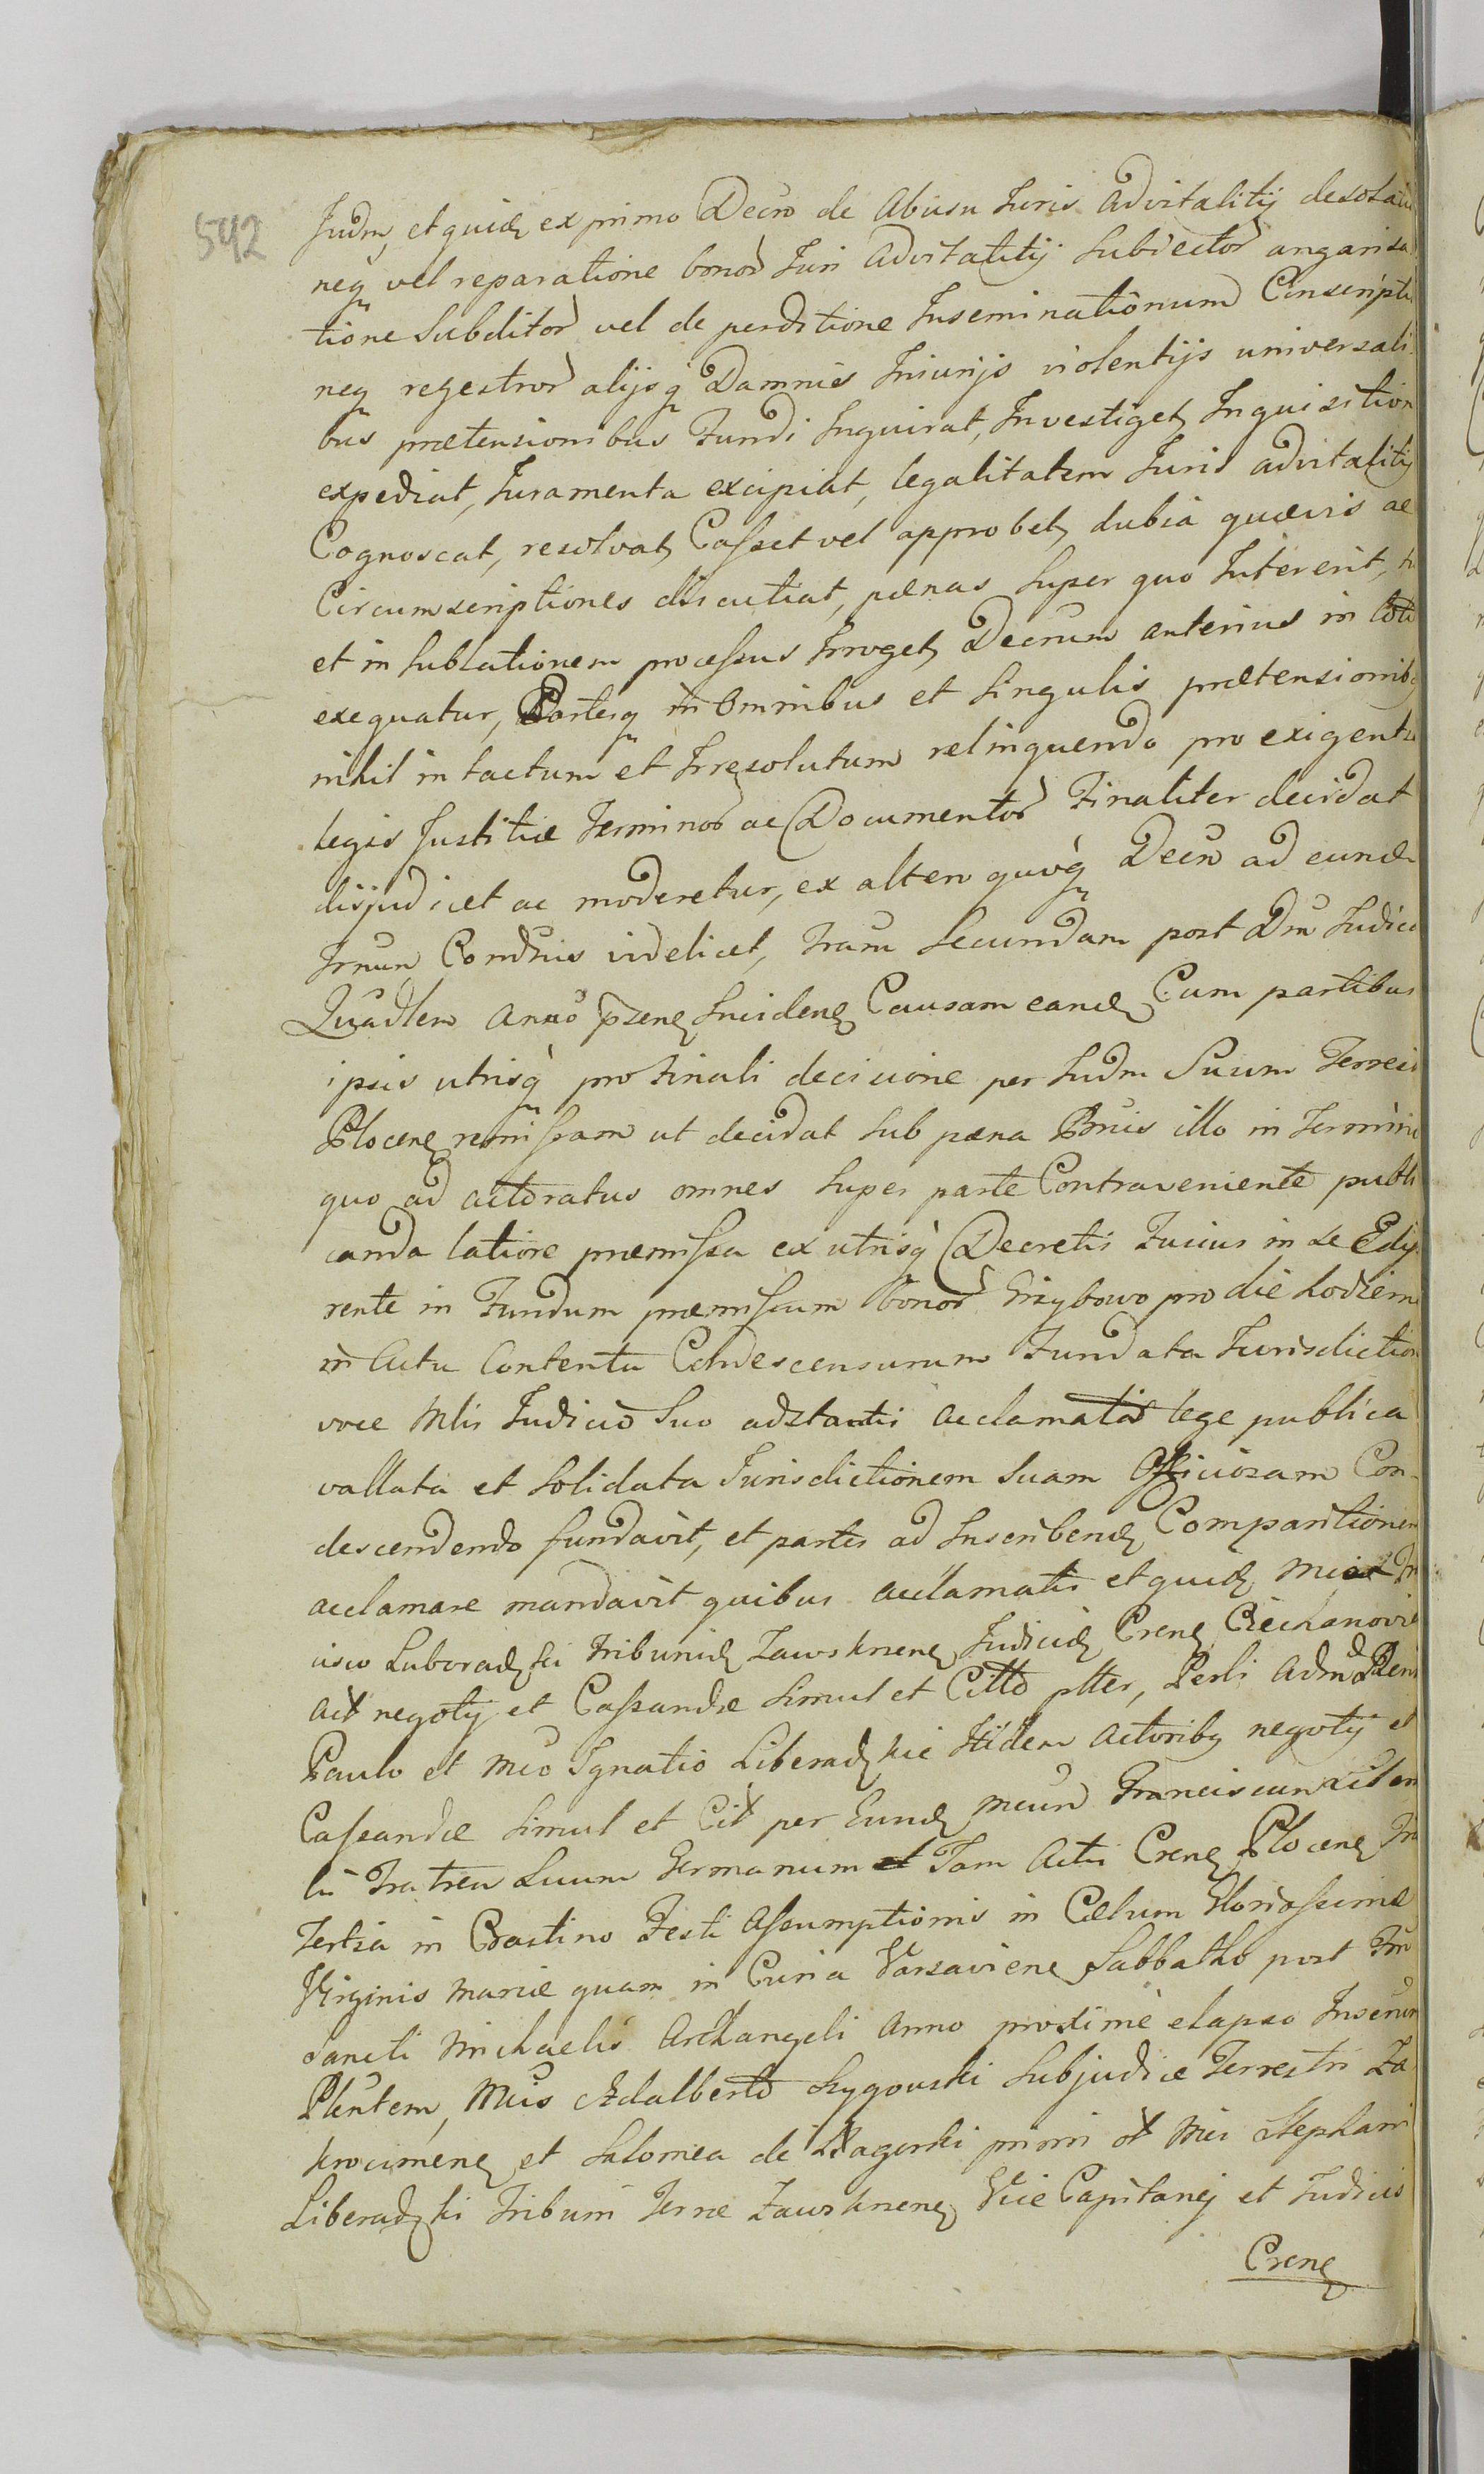 542
Judm, et quidz ex primo Decro de Abusu Juris Advitalitij desola
neqz vel reparatione bonor Juri Advitalitij Subiector angariza
tione Subditor vel de perditione Inseminationum Conscripti
neqz regestror alijsqz Damnis Iniurijs violentijs universali
bus praetensionibus Fundi Inquirat, Investiget, Inquisition
expediat, Juramenta excipiat, legalitatem Juris advitalitij
Cognoscat, resolvat, Casset vel approbet, dubia quaevis ac
Circumscriptiones discutiat, paenas super quo Intererit,
et in Sublationem processus Irroget, Decrum anterius in toto
exequatur, Partesqz in Omnibus et Singulis praetensionibz
nihil intactum et Irresolutum relinquendo pro exigentia
legis Justitiae Terminor ac Documentor Finaliter decidat
disjudicet ac moderetur, ex altero quoqz Decro ad eundz
Trnum Condnis videlicet, Fram Secundam post Dm Iudica
Quadlem Anno pzenz Incidenz Causam eandz Cum partibus
ipsis utrisqz pro Finali decisione per Judm Suum Terres
Plocenz remissam ut decidat sub paena Bnis illo in Termino
quo ad actoratus omnes super parte Contraveniente publi
canda latiore praemissa ex utrisqz Decretis Fusius in se Edis
rente in Fundum praemissum bonor Grzybowo pro die hodierna
in Actu Contenta Condescensurum Fundata Jurisdiction
voce Mlis Judicio Suo adstantis acclamata lege publica
vallata et Solidata Jurisdictionem Suam Officiosam Con-
descendendo fundavit, et partes ad Inscribendz Comparitionem
acclamare mandavit quibus acclamatis et quidz
cisco Luboradzki Tribunidz Zawskrnenz Judicidz Crenz Ciechanovi
Act negotij et Cassandae simul et Citto plter, Perli Admd Rendi
Paulo et Mco Ignatio Liberadzkie Itidem Actoribz negotij et
Cassandae simul et Cit per Eundz Mcum Franciscum
Fratrem Suum Germanum et Jam Actis Crenz Plocenz Fra
Tertia in Crastino Festi Assumptionis in Caelum Gloriossimae
Virginis Mariae quam in Curia Varsavienz Sabbatho post Fm
Sancti Michaelis Archangeli Anno proxime elapso Inserum
Plentem, Mcis Adalberto Szygowski Subjudice Terrestri Za
krocimenz et Salomea de primi Mci Stephani
Liberadzki Tribuni Terrae Zawskrnenz Vice Capitanei et Judicis
Crenz